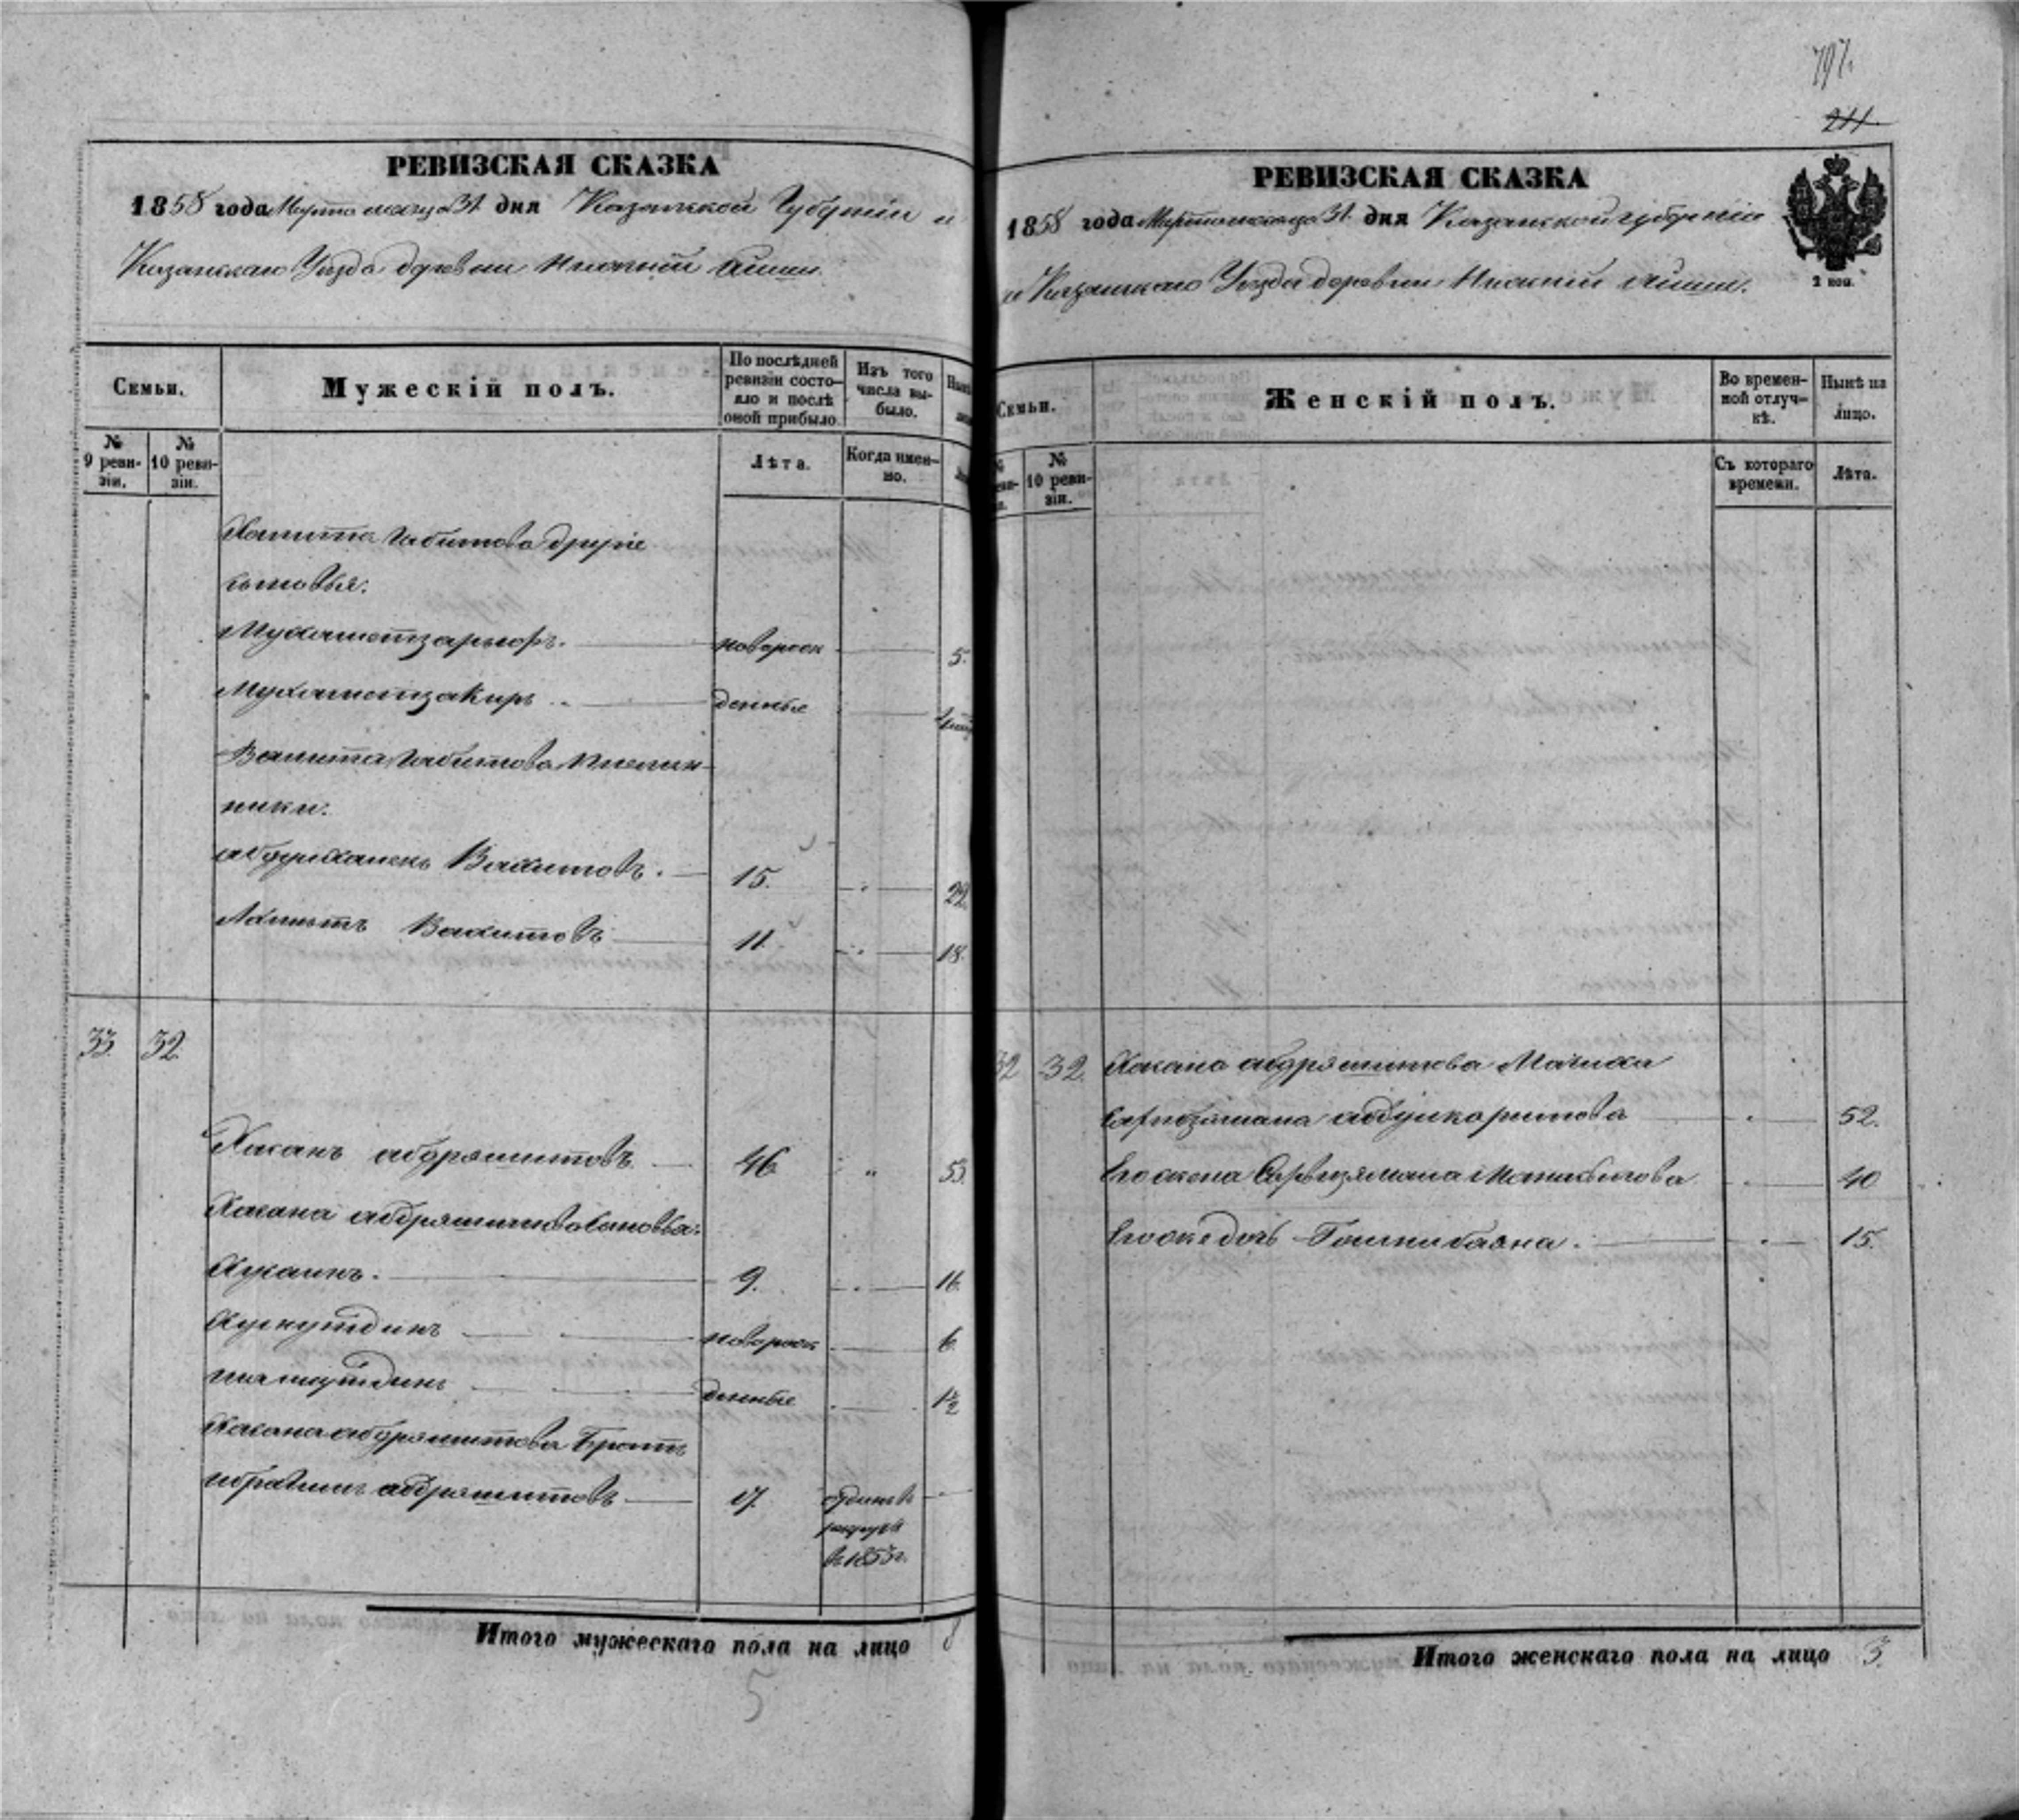 797.
211.
РЕВИЗСКАЯ СКАЗКА
1858 года Марта месяца 31 дня Казанской Губерніи и
Казанскаго Уезда деревни Нижней Айши
Семьи.
Мужескій полъ.
По послѣдней ревизіи состояло и послѣ оной прибыло.
Изъ того числа выбыло.
№ 9 ревизіи.
№ 10 ревизіи.
Лѣта.
Когда именно.
Хамита Габитова другіе
сыновья:
Мухаметзарыфъ. новорож 5.
Мухаметзакиръ денные
Вахита Габитова племян
ники:
Абдулханекъ Вахитовъ. 15. 22.
Вахитовъ 11. 18.
33. 32.
Хасанъ Абдряшитовъ 46 53.
Хасана Абдряшитова сыновья:
Хусаинъ. 9. 16.
новорож 6
денные 1 1/2
Хасана Абдряшитова Братъ
Ибрагимъ Абдряшитовъ 17. отданъ въ
рекруты
въ 1853 г.
Итого мужескаго пола на лицо 8
5
РЕВИЗСКАЯ СКАЗКА
1858 года Марта месяца 31 дня Казанской губерніи
и Казанскаго Уезда деревни Нижней Айши.
2 коп.
Семьи.
Женскій полъ.
Во временной отлучкѣ.
Нынѣ на лицо.
№ 10 ревизіи.
Съ котораго времени.
Лѣта.
32 32. Хасана Абдряшитова Мачиха
Абдулкаримова 52.
Его жена 40
Его же дочь 15.
Итого женскаго пола на лицо 3.